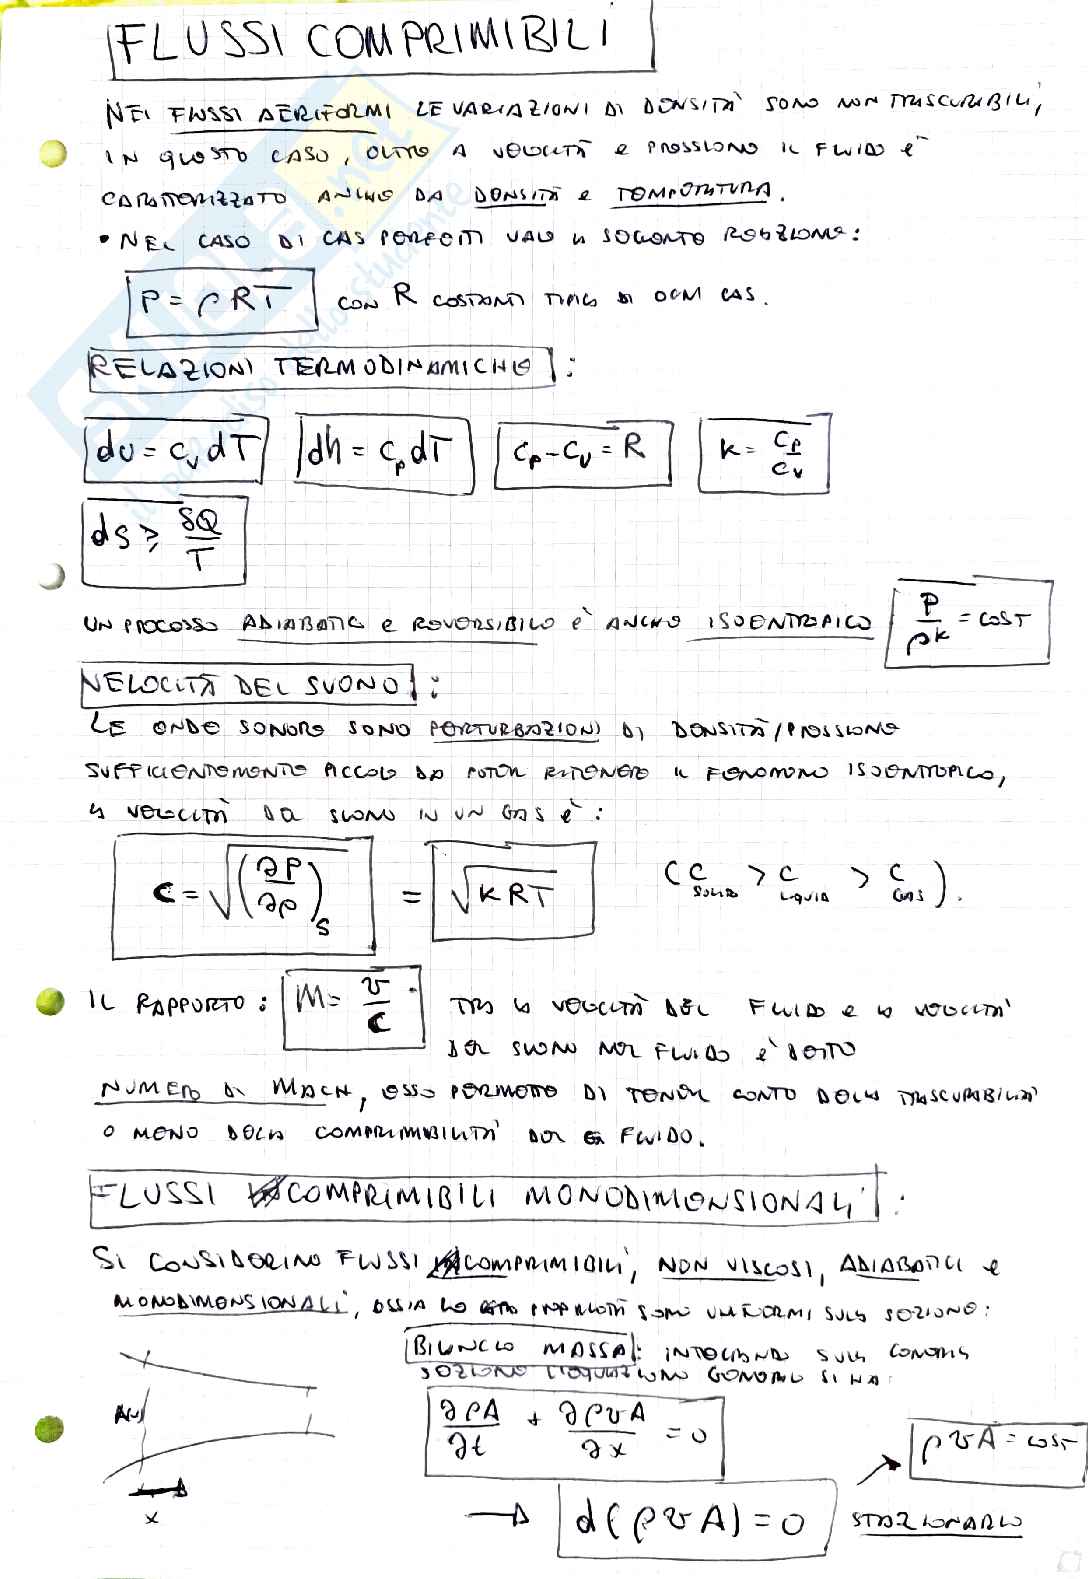 FLUSSI COMPRIMIBILI
NEI FLUSSI AERIFORMI LE VARIAZIONI DI DENSITÀ SONO NON TRASCURIBILI,
IN QUESTO CASO, OLTRE A VELOCITÀ E PRESSIONE IL FLUIDO È
CARATTERIZZATO ANCHE DA DENSITÀ E TEMPERATURA.
• NEL CASO DI GAS PERFETTI VALE LA SEGUENTE RELAZIONE:
P = ρRT CON R COSTANTE TIPICA DI OGNI GAS.
RELAZIONI TERMODINAMICHE :
du = c_v dT dh = c_p dT c_p - c_v = R k = c_p/c_v
ds ≥ δQ/T
UN PROCESSO ADIABATICO E REVERSIBILE È ANCHE ISOENTROPICO P/ρ^k = COST
VELOCITÀ DEL SUONO :
LE ONDE SONORE SONO PERTURBAZIONI DI DENSITÀ/PRESSIONE
SUFFICIENTEMENTE PICCOLE DA POTER RITENERE IL FENOMENO ISOENTROPICO,
LA VELOCITÀ DEL SUONO IN UN GAS È :
c = √(∂P/∂ρ)_s = √kRT (c_SOLIDO > c_LIQUIDO > c_GAS).
IL RAPPORTO : M = v/c TRA LA VELOCITÀ DEL FLUIDO E LA VELOCITÀ
DEL SUONO NEL FLUIDO È DETTO
NUMERO DI MACH, ESSO PERMETTE DI TENER CONTO DELLA TRASCURABILITÀ
O MENO DELLA COMPRIMIBILITÀ DEL FLUIDO.
FLUSSI COMPRIMIBILI MONODIMENSIONALI :
SI CONSIDERINO FLUSSI COMPRIMIBILI, NON VISCOSI, ADIABATICI E
MONODIMENSIONALI, OSSIA LE PROPRIETÀ SONO UNIFORMI SULLA SEZIONE:
BILANCIO MASSA : INTEGRANDO SULLA GENERICA
SEZIONE L'EQUAZIONE GENERALE SI HA:
A(x)
x
∂ρA/∂t + ∂ρvA/∂x = 0
ρvA = COST
→ d(ρvA) = 0 STAZIONARIO